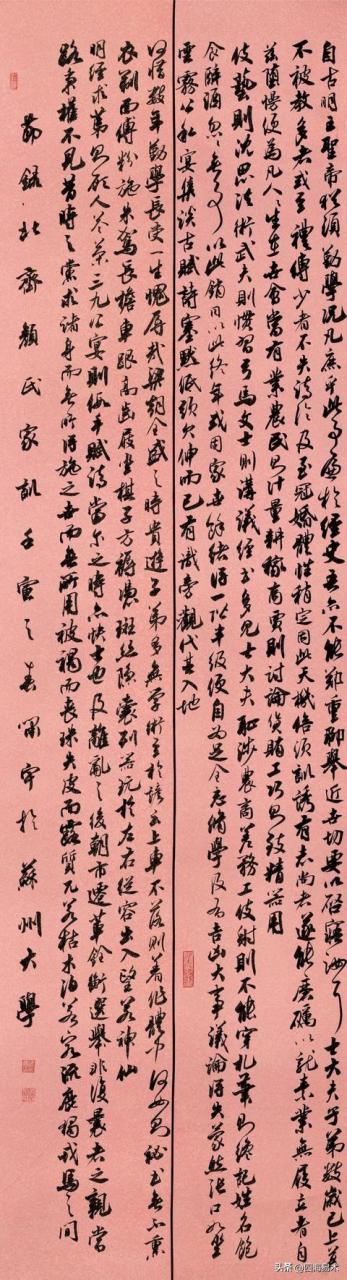 自古明王聖帝猶須勤學況凡庶乎此事遍於經史吾亦不能鄭重聊舉近世切要以啓寤汝耳士大夫子弟數歲已上莫
不被教多者或至禮傳少者不失詩論及至冠婚體性稍定因此天機倍須訓誘有志尚者遂能磨礪以就素業無履立者自
茲墮慢便為凡人人生在世會當有業農民則計量耕稼商賈則討論貨賄工巧則致精器用
伎藝則沈思法術武夫則慣習弓馬文士則講議經書多見士大夫恥涉農商羞務工伎射則不能穿札筆則纔記姓名飽
食醉酒忽忽無事以此銷日以此終年或因家世餘緒得一階半級便自為足全忘修學及有吉凶大事議論得失蒙然張口如坐
雲霧公私宴集談古賦詩塞默低頭欠伸而已有識旁觀代其入地
何惜數年勤學長受一生愧辱哉梁朝全盛之時貴遊子弟多無學術至於諺云上車不落則著作體中何如則秘書無不熏
衣剃面傅粉施朱駕長簷車跟高齒屐坐棋子方褥憑斑絲隱囊列器玩於左右從容出入望若神仙
明經求第則顧人答策三九公宴則假手賦詩當爾之時亦快士也及離亂之後朝市遷革銓衡選舉非復曩者之親當
路秉權不見昔時之黨求諸身而無所得施之世而無所用被褐而喪珠失皮而露質兀若枯木泊若窮流鹿獨戎馬之間
節錄北齊顏氏家訓壬寅之春於蘇州大學
头条 @四海易木